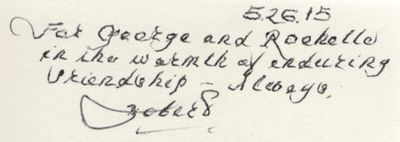 5.26.15
For George and Rochelle
in the warmth of enduring
friendship - Always,
Robert